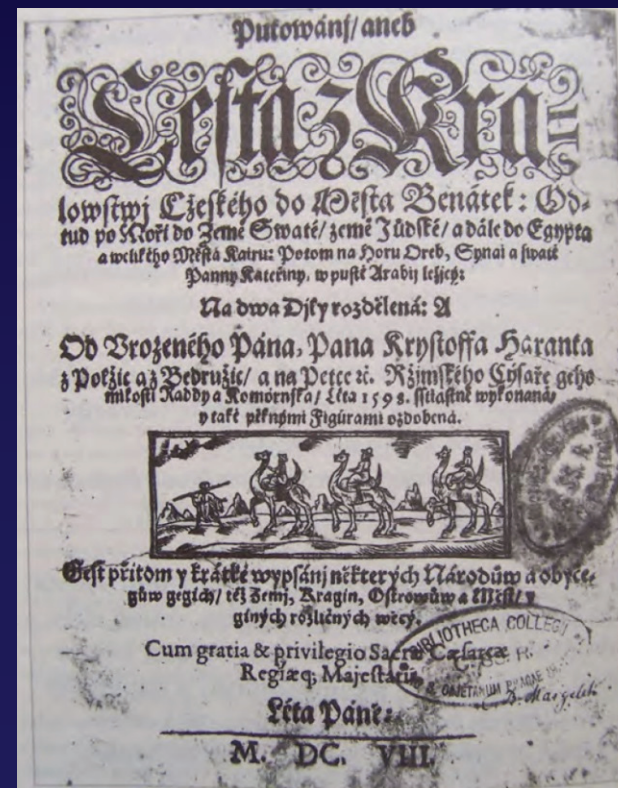 Putowánj/ aneb
Cesta z Kra=
lowstwj Cžeského do Města Benátek: Od-
tud po Moři do Země Swaté/ země Jůdské/ a dále do Egypta
a welikého Města Kairu: Potom na Horu Oreb, Synai a swaté
Panny Kateřiny, w pusté Arabij ležjcý:
Na dwa Djly rozdělená: A
Od Vrozeného Pána, Pana Krystoffa Haranta
z Polžic a z Bedružic/ a na Petce ꝛč. Ržimského Cýsaře geho
milosti Raddy a Komornjka/ Léta 1598. sstiastně wykonaná,
y také pěknými Figúrami ozdobená.
Gest přitom y krátké wypsánj některých Národůw a obyče-
gůw gegich/ též Zemj, Kragin, Ostrowůw a Měst/ y
giných rozličných wěcý.
Cum gratia & privilegio Sacræ Cæsareæ
Regiæq; Majestatis
Léta Páně:
M. DC. VIII.
BIBLIOTHECA COLLEGI